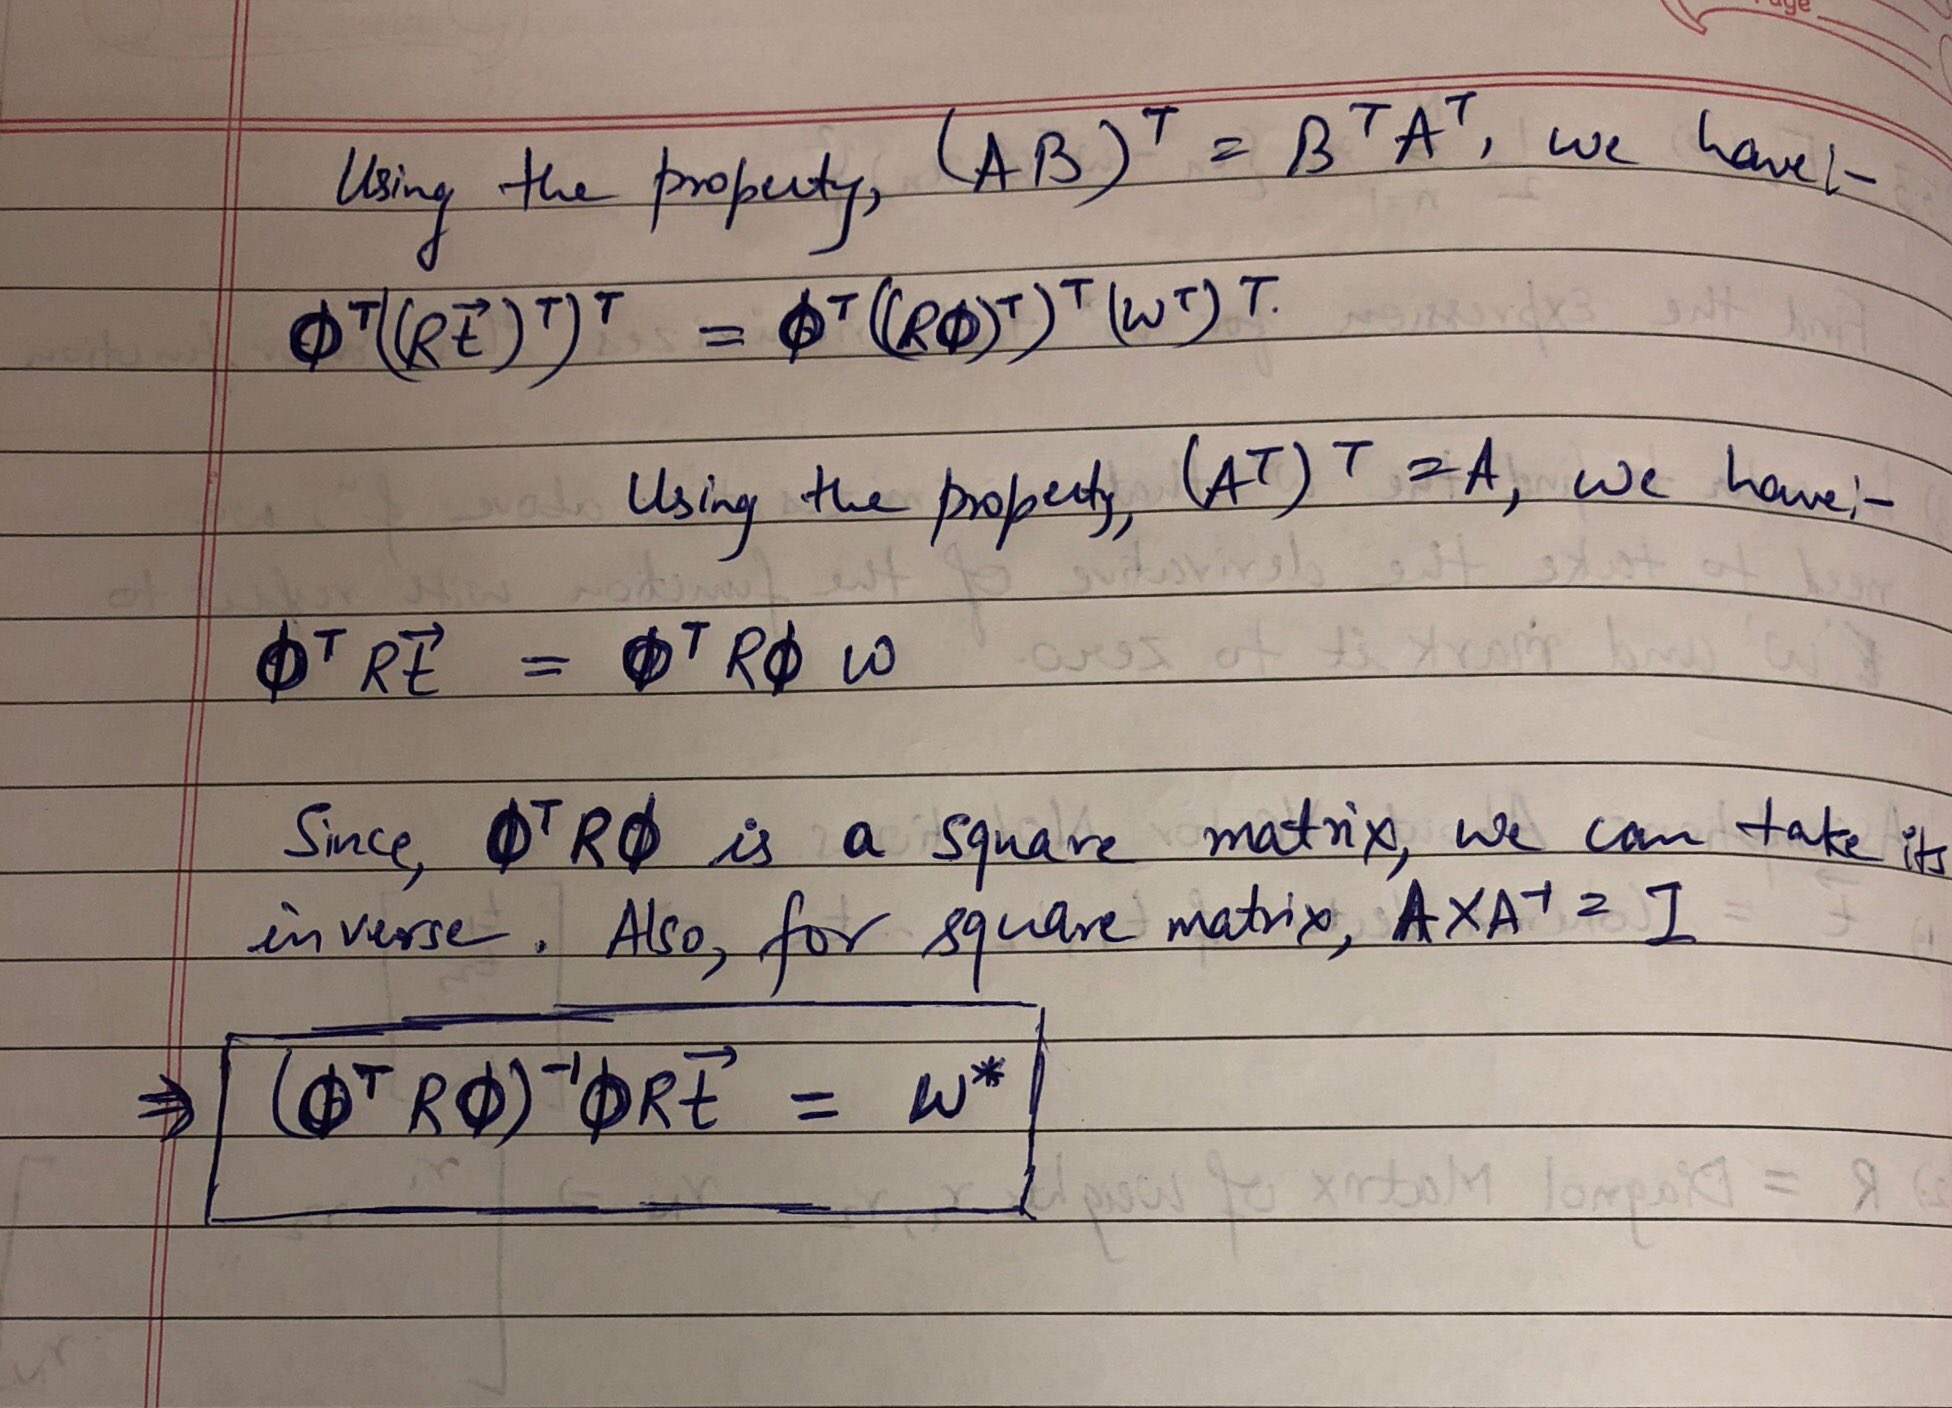 Page
Using the property, (AB)ᵀ = BᵀAᵀ, we have:-
ϕᵀ((Rt⃗)ᵀ)ᵀ = ϕᵀ((Rϕ)ᵀ)ᵀ(wᵀ)ᵀ.
Using the property, (Aᵀ)ᵀ = A, we have:-
ϕᵀRt⃗ = ϕᵀRϕ w
Since, ϕᵀRϕ is a square matrix, we can take its
inverse. Also, for square matrix, A×A⁻¹ = I
⇒ (ϕᵀRϕ)⁻¹ϕRt⃗ = w*